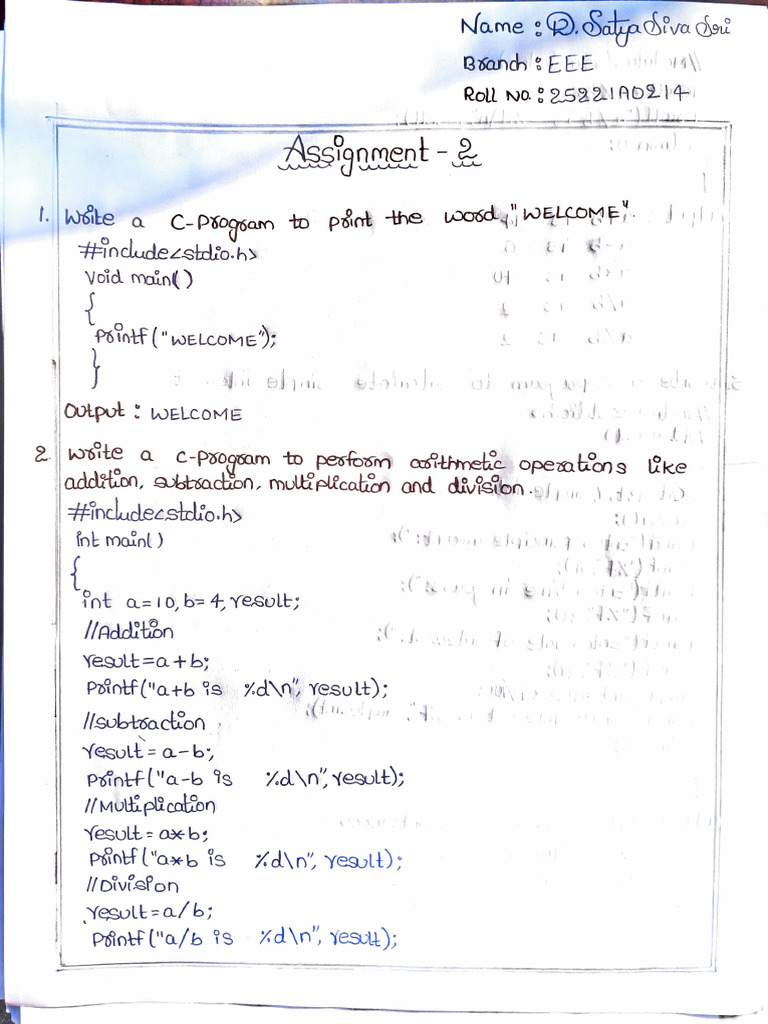 Name : D. Satya Siva Sri
Branch : EEE
Roll No. : 25221A0214
Assignment - 2
1. Write a C-Program to print the word "WELCOME".
#include<stdio.h>
Void main()
{
Printf("WELCOME");
}
Output : WELCOME
2. Write a C-Program to perform arithmetic operations like
addition, subtraction, multiplication and division.
#include<stdio.h>
int main()
{
int a=10, b=4, result;
//Addition
result=a+b;
Printf("a+b is %d\n", result);
//subtraction
result=a-b;
Printf("a-b is %d\n", result);
//Multiplication
result=a*b;
Printf("a*b is %d\n", result);
//Division
result=a/b;
Printf("a/b is %d\n", result);